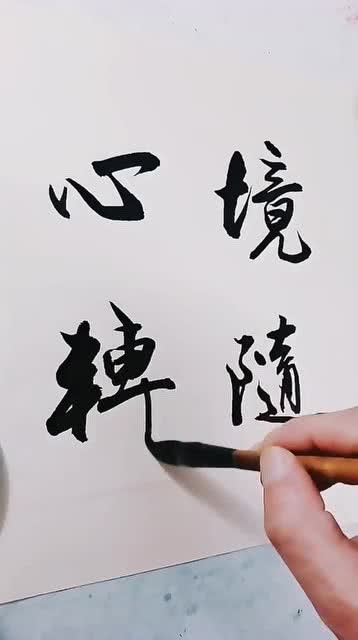 境隨
心轉